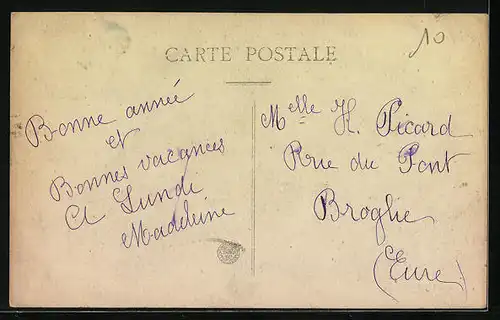 CARTE POSTALE
10
Bonne année
et
Bonnes vacances
A Lundi
Madeleine
Melle H. Picard
Rue du Pont
Broglie
(Eure)